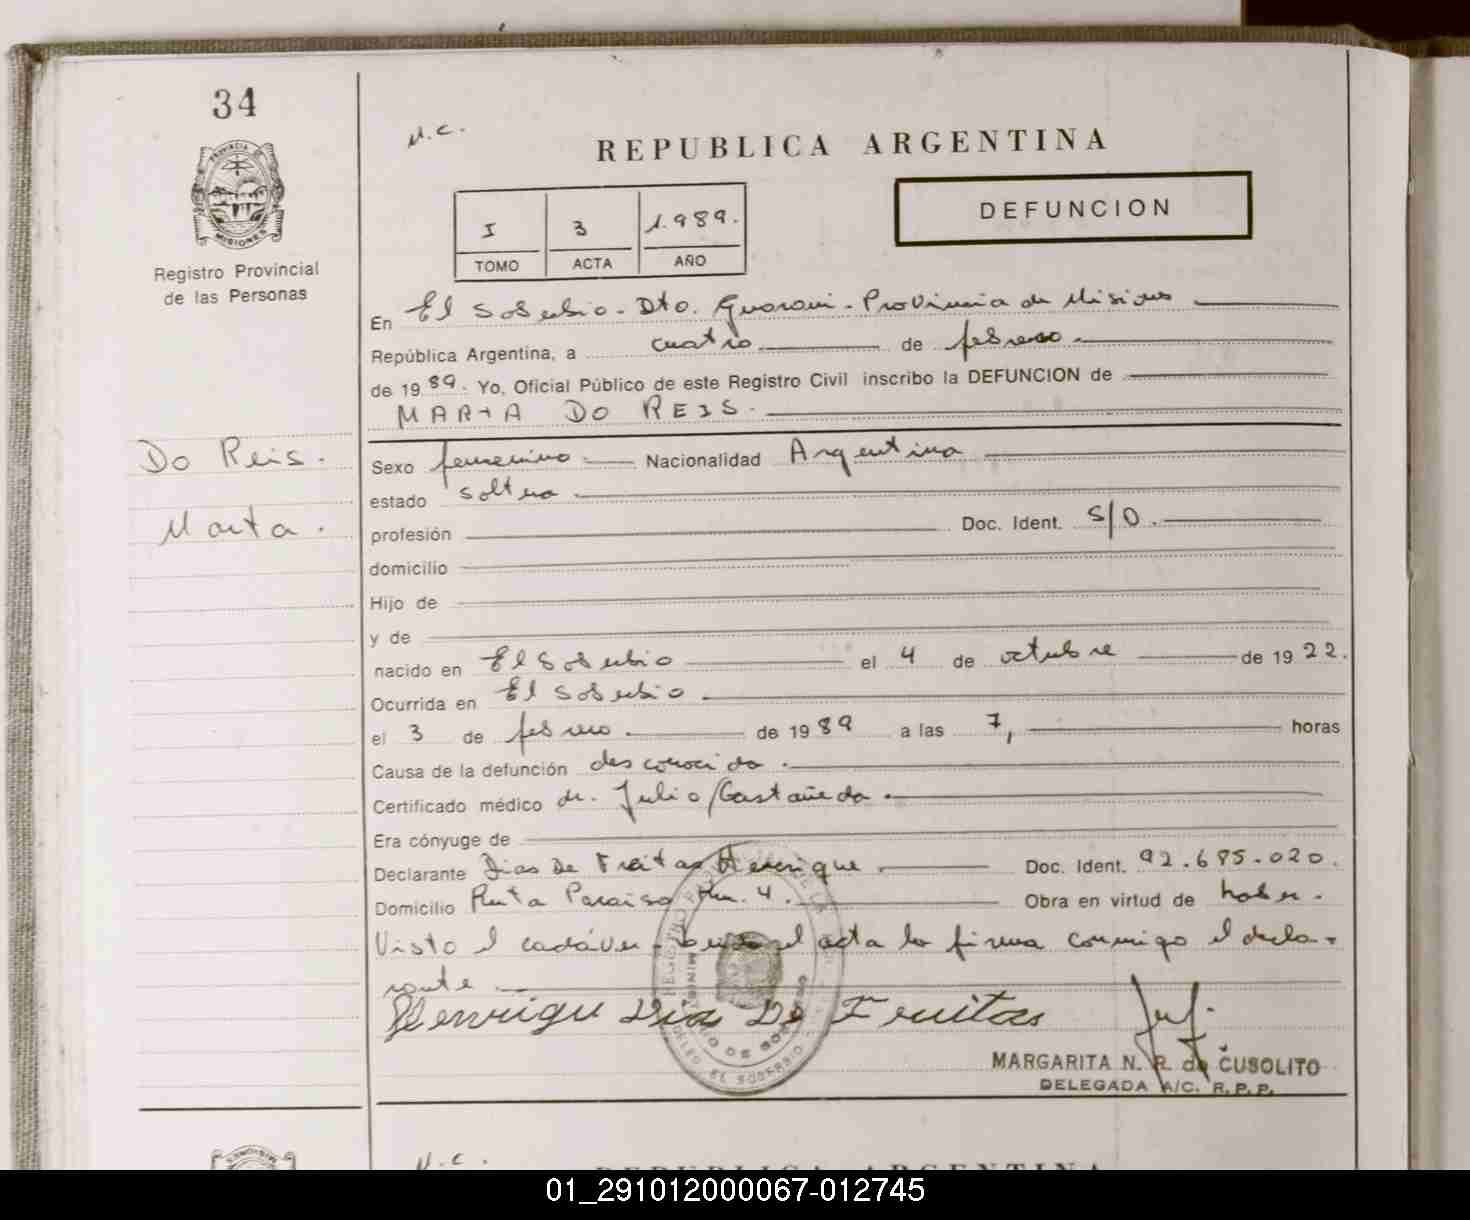 34
M.C.
REPUBLICA ARGENTINA
PROVINCIA
MISIONES
Registro Provincial
de las Personas
I 3 1.989.
TOMO ACTA AÑO
DEFUNCION
En El Soberbio - Dto. Guarani - Provincia de Misiones
República Argentina, a cuatro de febrero.
de 1989. Yo, Oficial Público de este Registro Civil inscribo la DEFUNCION de
MARIA DO REIS.
Do Reis.
Sexo femenino Nacionalidad Argentina
estado soltera.
Maria.
profesión Doc. Ident. S/D.
domicilio
Hijo de
y de
nacido en El Soberbio el 4 de octubre de 1922.
Ocurrida en El Soberbio.
el 3 de febrero. de 1989 a las 7, horas
Causa de la defunción desconocida.
Certificado médico dr. Julio Castañeda.
Era cónyuge de
Declarante Dias De Freitas Henrique. Doc. Ident. 92.685.020.
Domicilio Ruta Paraiso Km. 4. Obra en virtud de haber.
Visto el cadáver - leida el acta la firma conmigo el decla-
rante.
Henrique Dias De Freitas
MARGARITA N. R. de CUSOLITO
DELEGADA A/C. R.P.P.
M.C.
REPUBLICA ARGENTINA
01_291012000067-012745